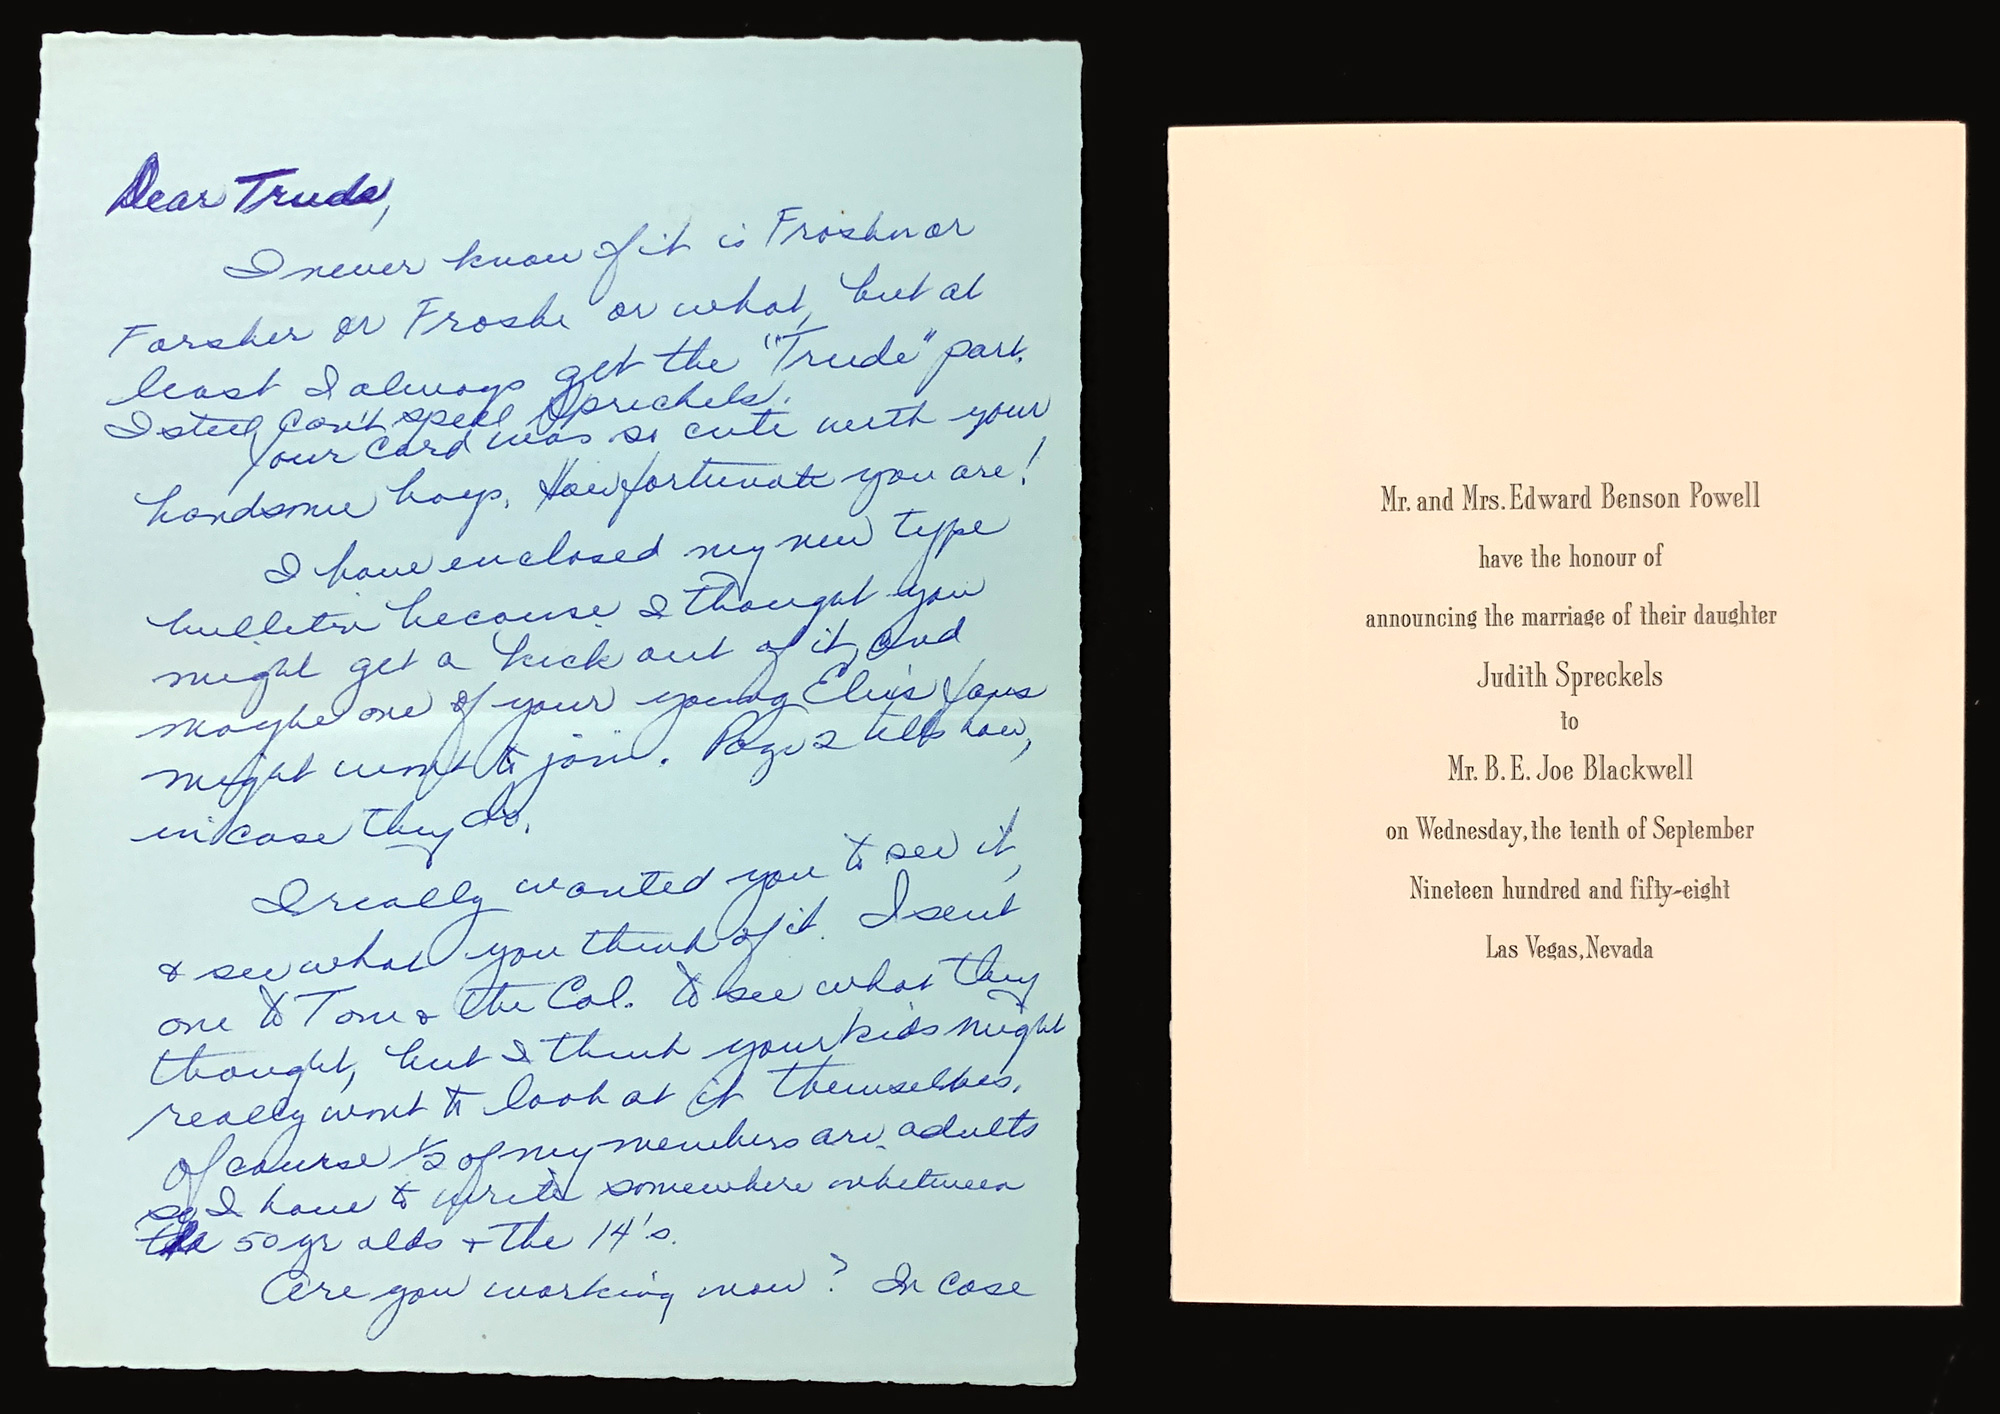 Dear Trude,
I never know if it is Frosher or
Forsher or Froshe or what, but at
least I always get the "Trude" part.
I still can't spell Spreckels.
Your card was so cute with your
handsome boys. How fortunate you are!
I have enclosed my new type
bulletin because I thought you
might get a kick out of it, and
maybe one of your young Elvis fans
might want to join. Page 2 tells how,
in case they do.
I really wanted you to see it,
& see what you think of it. I sent
one to Tom & the Col. to see what they
thought, but I think your kids might
really want to look at it themselves.
Of course 1/2 of my members are adults
so I have to write somewhere inbetween
the 50 yr olds + the 14's.
Are you working now? In case
Mr. and Mrs. Edward Benson Powell
have the honour of
announcing the marriage of their daughter
Judith Spreckels
to
Mr. B. E. Joe Blackwell
on Wednesday, the tenth of September
Nineteen hundred and fifty-eight
Las Vegas, Nevada